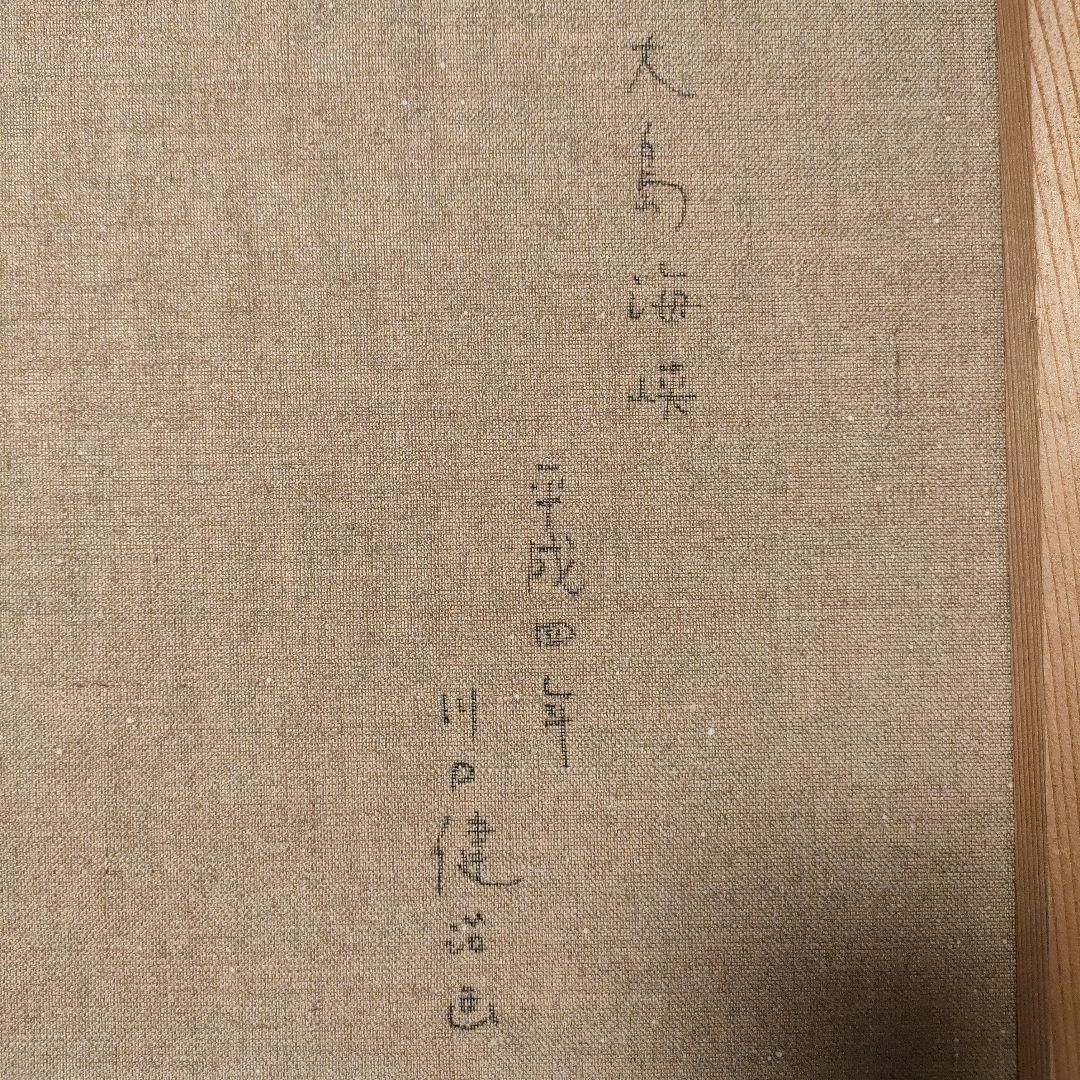 大島海峡
平成四年
川口健治画